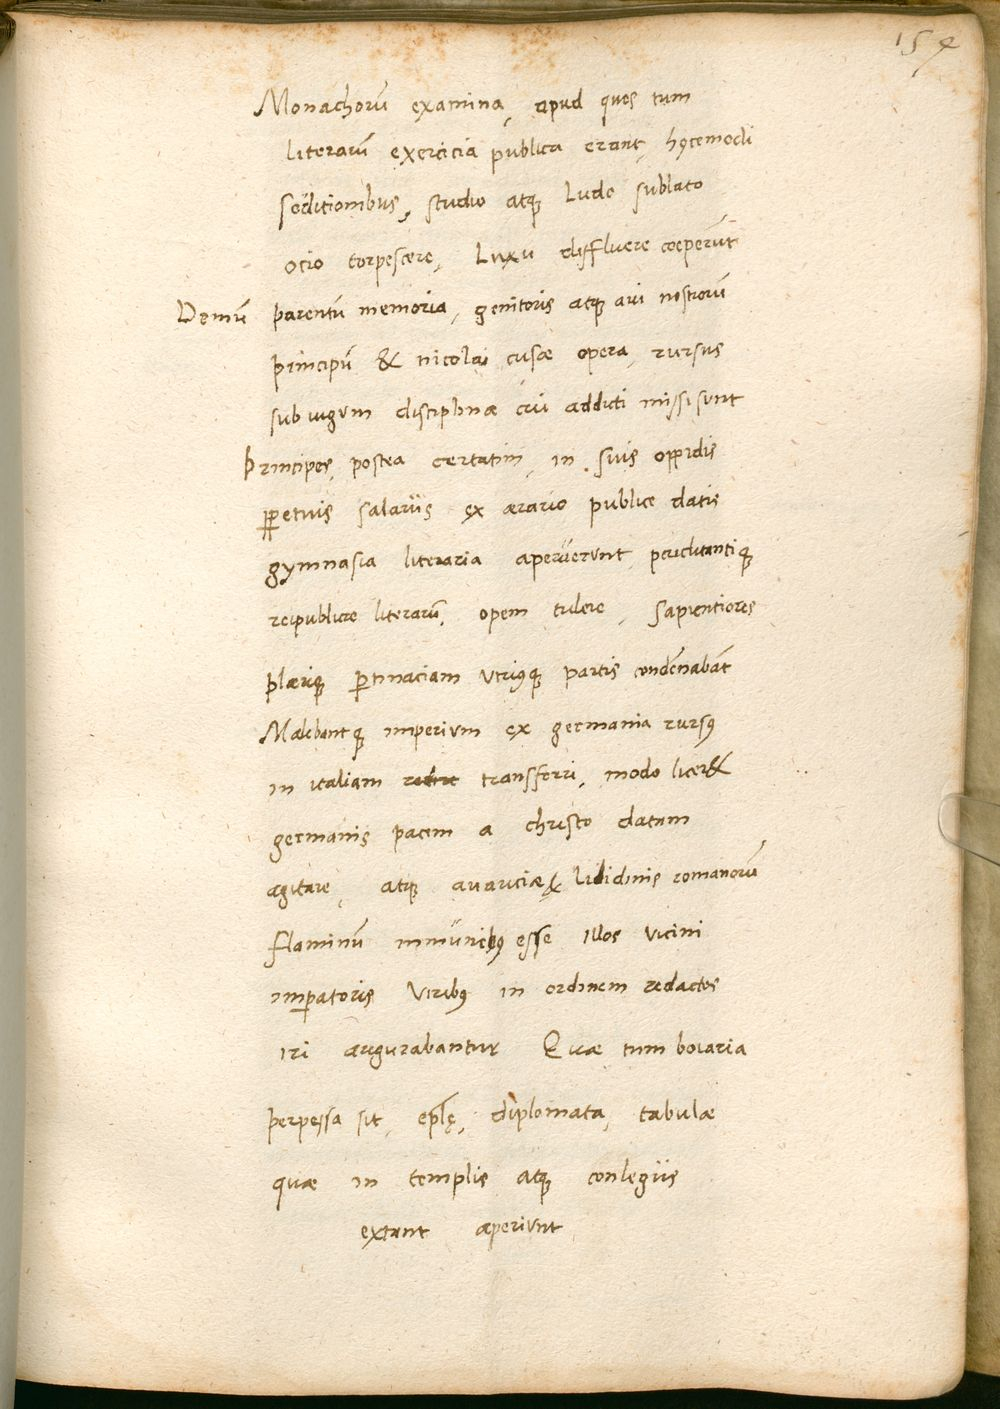 154
Monachorū examina, apud quos tum
literarū exercicia publica erant, hꝯcemodi
seditionibus, studio atqꝫ Ludo sublato
ocio torpescere, Luxu diffluere coeperūt
Demū parentū memoria, genitoris atqꝫ aui nostrorū
principū & nicolai cusæ opera, rursus
sub iugum disciplinæ cui addicti missi sunt
Principes, postea certatim in suis oppidis
ꝑpetuis salariis ex ærario publice datis
gymnasia literaria aperuerunt, periclitantiqꝫ
reipublicæ literarū, opem tulere, sapientiores
plæriqꝫ ꝑtinaciam vtriꝯqꝫ partis condēnabāt
Malebantqꝫ imperium ex germania rursꝯ
in italiam transferri, modo licer&
germanis pacem a christo datam
agitare, atqꝫ auariciæ & libidinis romanorū
flaminū immūnibꝯ esse Illos vicini
imꝑatoris Viribꝯ in ordinem redactos
iri augurabantur Quæ tum boiaria
perpessa sit, epl̄ę, diplomata, tabulæ
quæ in templis atqꝫ conlegiis
extant aperiunt